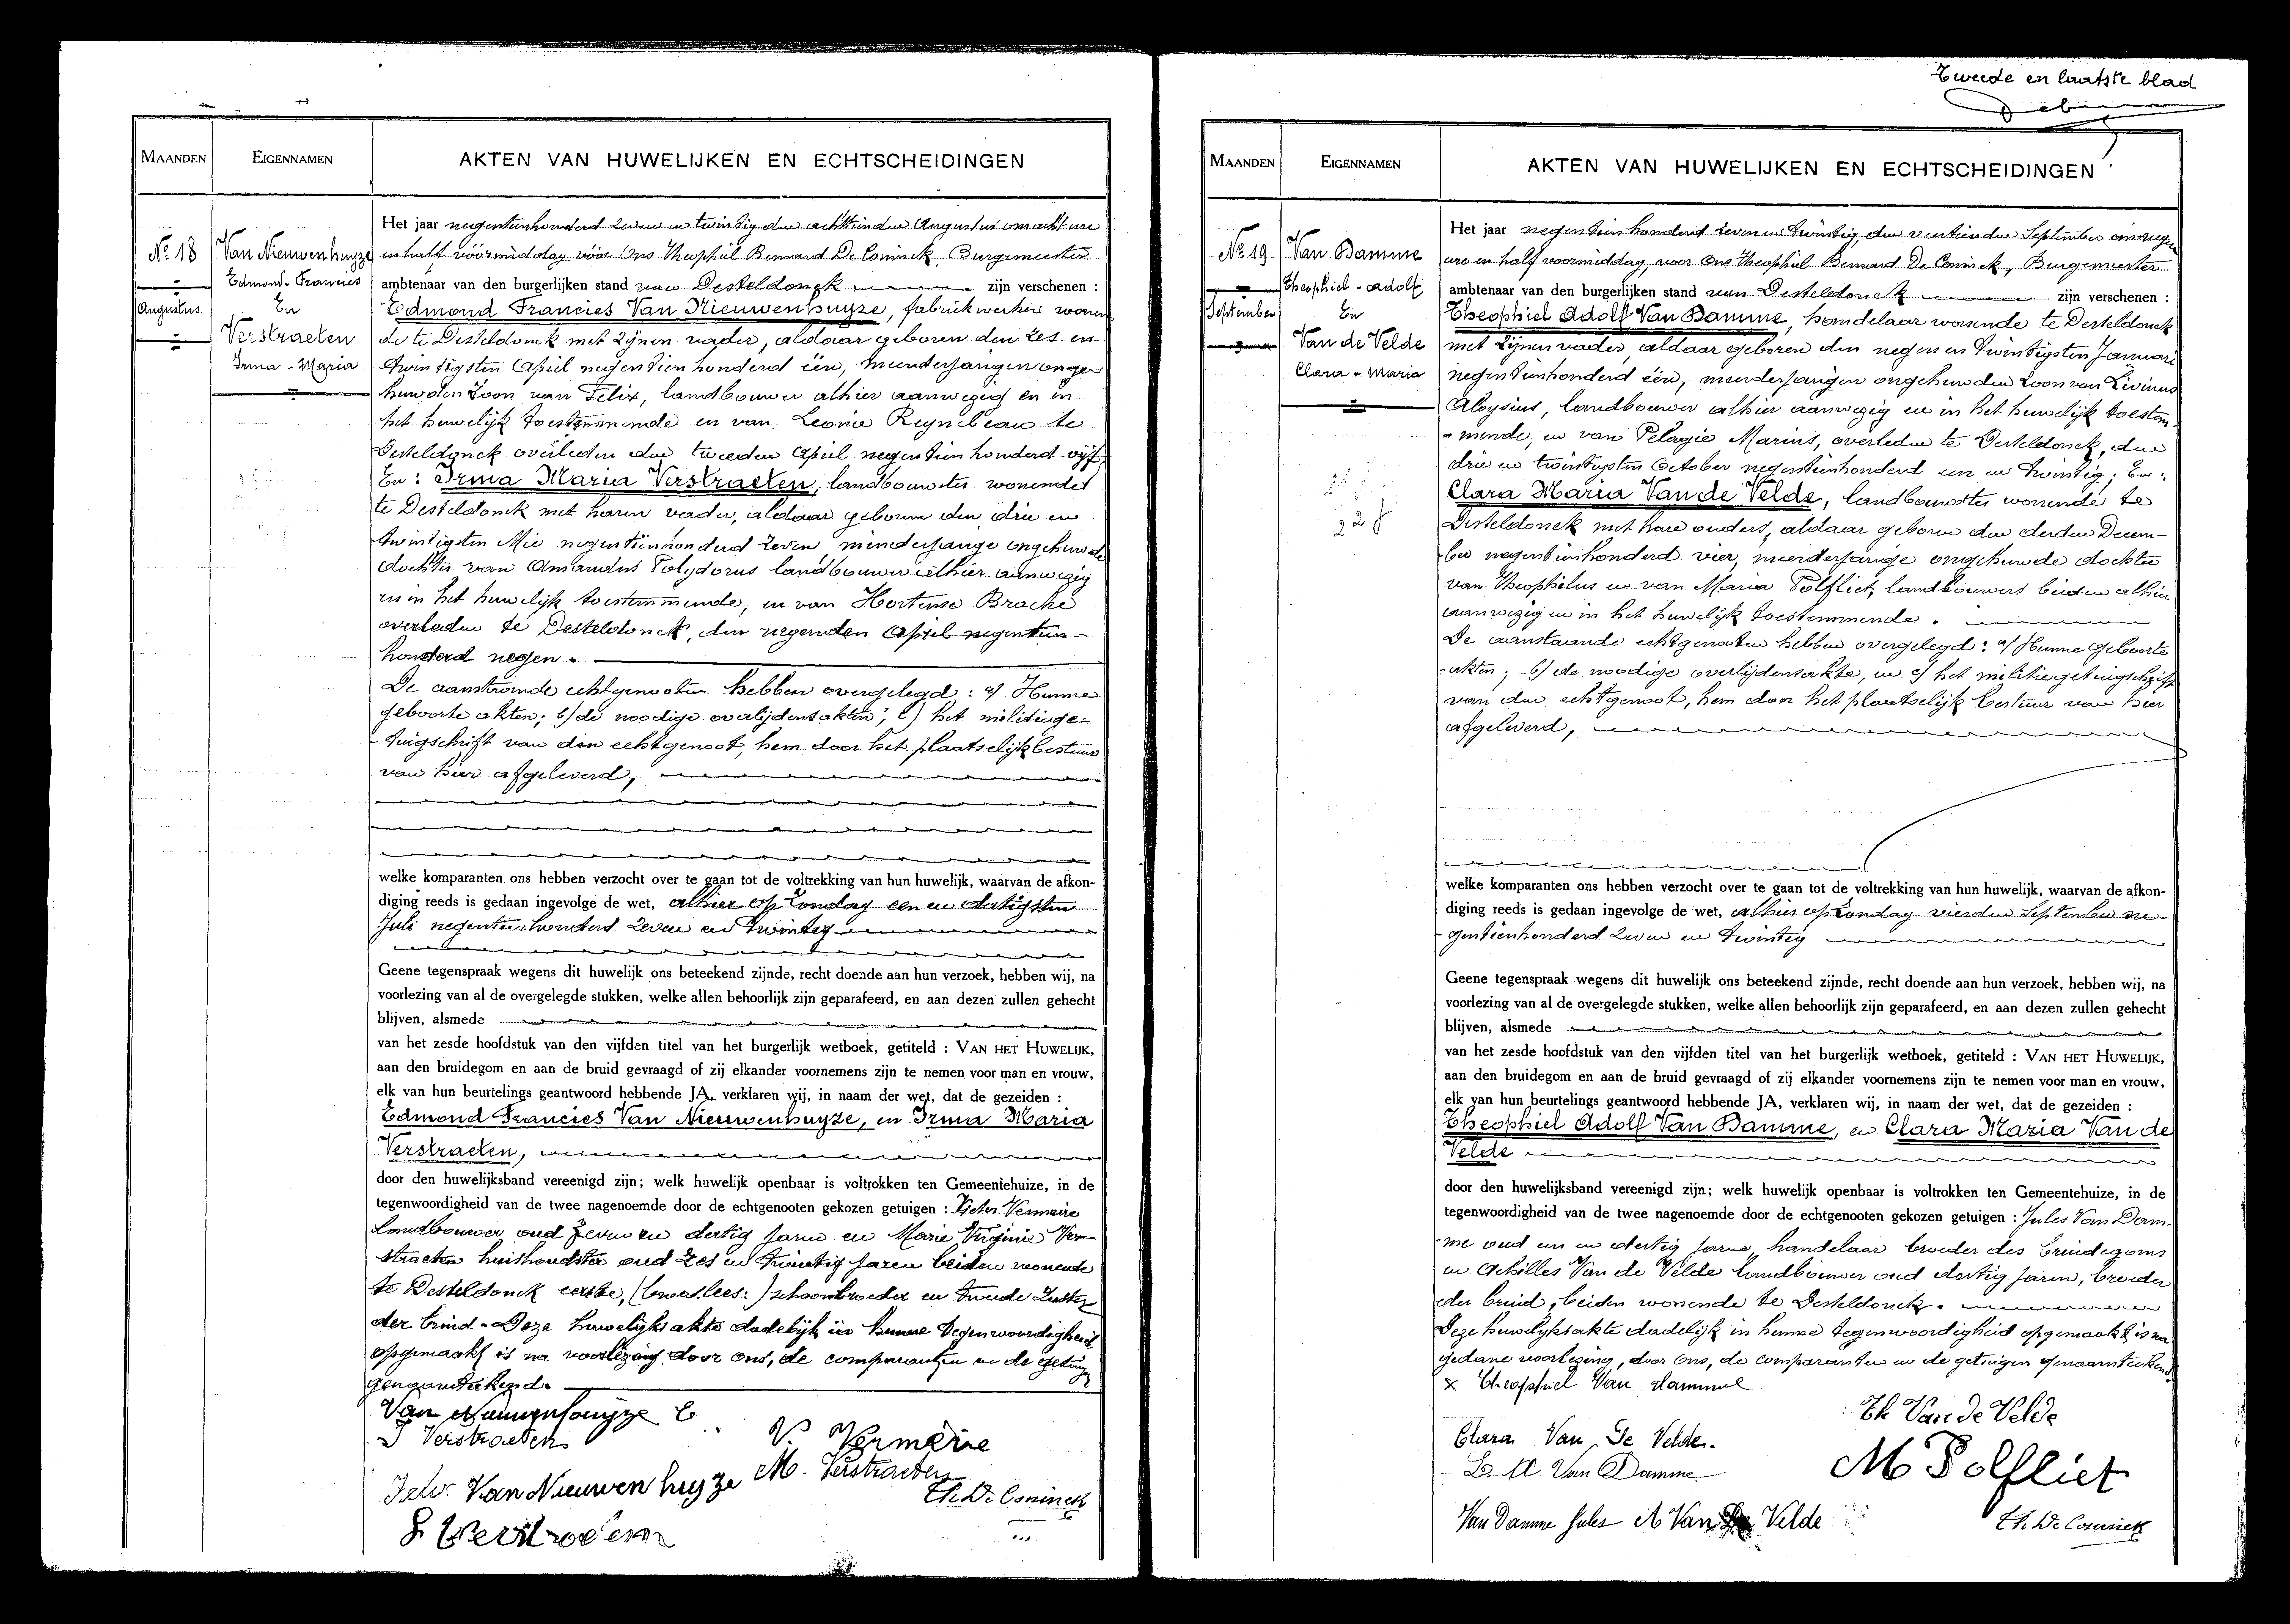 MAANDEN
EIGENNAMEN
AKTEN VAN HUWELIJKEN EN ECHTSCHEIDINGEN
No 18
Augustus
Van Nieuwenhuyze
Edmond-Francies
En
Verstraeten
Irma-Maria
Het jaar negentienhonderd zeven en twintig den achttienden Augustus om acht ure
en half vóórmiddag vóór Ons Theophiel Bernard De Coninck, Burgemeester
ambtenaar van den burgerlijken stand van Desteldonck zijn verschenen :
Edmond Francies Van Nieuwenhuyze, fabriekwerker wonen
de te Desteldonck met zijnen vader, aldaar geboren den zes en
twintigsten April negentien honderd één, meerderjarigen onge
huwden zoon van Felix, landbouwer alhier aanwezig en in
het huwelijk toestemmende en van Leonie Reynebeau te
Desteldonck overleden den tweeden April negentien honderd vijf,
En : Irma Maria Verstraeten, landbouwster wonende
te Desteldonck met haren vader, aldaar geboren den drie en
twintigsten Mei negentienhonderd zeven minderjarige ongehuwde
dochter van Amandus Polydorus landbouwer alhier aanwezig
en in het huwelijk toestemmende, en van Hortense Bracke
overleden te Desteldonck, den negenden April negentien-
honderd negen.
De aanstaande echtgenooten hebben overgelegd : a/ Hunne
geboorte akten; b/ de noodige overlijdensakten; c/ het militiege-
-tuigschrift van den echtgenoot, hem door het plaatselijk bestuur
van hier afgeleverd,
welke komparanten ons hebben verzocht over te gaan tot de voltrekking van hun huwelijk, waarvan de afkon-
diging reeds is gedaan ingevolge de wet, alhier op zondag een en dertigsten
Juli negentien honderd zeven en twintig
Geene tegenspraak wegens dit huwelijk ons beteekend zijnde, recht doende aan hun verzoek, hebben wij, na
voorlezing van al de overgelegde stukken, welke allen behoorlijk zijn geparafeerd, en aan dezen zullen gehecht
blijven, alsmede
van het zesde hoofdstuk van den vijfden titel van het burgerlijk wetboek, getiteld : VAN HET HUWELIJK,
aan den bruidegom en aan de bruid gevraagd of zij elkander voornemens zijn te nemen voor man en vrouw,
elk van hun beurtelings geantwoord hebbende JA, verklaren wij, in naam der wet, dat de gezeiden :
Edmond Francies Van Nieuwenhuyze, en Irma Maria
Verstraeten,
door den huwelijksband vereenigd zijn; welk huwelijk openbaar is voltrokken ten Gemeentehuize, in de
tegenwoordigheid van de twee nagenoemde door de echtgenooten gekozen getuigen : Victor Vermeire
landbouwer oud zeven en dertig jaren en Marie Virginie Ver-
straeten huishoudster oud zes en twintig jaren beiden wonende
te Desteldonck eerste, schoonbroeder en tweede zuster
der bruid - Deze huwelijksakte dadelijk in hunne tegenwoordigheid
opgemaakt is na voorlezing door ons, de comparanten en de getuigen
genaamteekend.
Van Nieuwenhuyze E
I Verstraeten
V. Vermeire
M. Verstraeten
Felix Van Nieuwenhuyze
Th. De Coninck
Verstraeten
Tweede en laatste blad
MAANDEN
EIGENNAMEN
AKTEN VAN HUWELIJKEN EN ECHTSCHEIDINGEN
No 19
September
Van Damme
Theophiel-Adolf
En
Van de Velde
Clara-Maria
Het jaar negentien honderd zeven en twintig, den veertienden September om negen
ure en half voormiddag, voor Ons Theophiel Bernard De Coninck, Burgemeester
ambtenaar van den burgerlijken stand van Desteldonck zijn verschenen :
Theophiel Adolf Van Damme, handelaar wonende te Desteldonck
met zijnen vader, aldaar geboren den negen en twintigsten Januari
negentienhonderd één, meerderjarigen ongehuwden zoon van Livinus
Aloysius, landbouwer alhier aanwezig en in het huwelijk toestem-
-mende, en van Pelagie Marius, overleden te Desteldonck, den
drie en twintigsten October negentienhonderd een en twintig; En :
Clara Maria Van de Velde, landbouwster wonende te
Desteldonck met hare ouders, aldaar geboren den derden Decem-
-ber negentienhonderd vier, meerderjarige ongehuwde dochter
van Theophielus en van Maria Polfliet, landbouwers beiden alhier
aanwezig en in het huwelijk toestemmende.
De aanstaande echtgenooten hebben overgelegd : a/ Hunne geboorte
-akten; b/ de noodige overlijdensakte, en c/ het militiegetuigschrift
van den echtgenoot, hem door het plaatselijk bestuur van hier
afgeleverd,
welke komparanten ons hebben verzocht over te gaan tot de voltrekking van hun huwelijk, waarvan de afkon-
diging reeds is gedaan ingevolge de wet, alhier op zondag vierden September ne-
-gentienhonderd zeven en twintig
Geene tegenspraak wegens dit huwelijk ons beteekend zijnde, recht doende aan hun verzoek, hebben wij, na
voorlezing van al de overgelegde stukken, welke allen behoorlijk zijn geparafeerd, en aan dezen zullen gehecht
blijven, alsmede
van het zesde hoofdstuk van den vijfden titel van het burgerlijk wetboek, getiteld : VAN HET HUWELIJK,
aan den bruidegom en aan de bruid gevraagd of zij elkander voornemens zijn te nemen voor man en vrouw,
elk van hun beurtelings geantwoord hebbende JA, verklaren wij, in naam der wet, dat de gezeiden :
Theophiel Adolf Van Damme, en Clara Maria Van de
Velde
door den huwelijksband vereenigd zijn; welk huwelijk openbaar is voltrokken ten Gemeentehuize, in de
tegenwoordigheid van de twee nagenoemde door de echtgenooten gekozen getuigen : Jules Van Dam-
-me oud een en dertig jaren, handelaar broeder des bruidegoms
en Achilles Van de Velde landbouwer oud dertig jaren, broeder
der bruid, beiden wonende te Desteldonck.
Deze huwelijksakte dadelijk in hunne tegenwoordigheid opgemaakt, is na
gedane voorlezing, door Ons, de comparanten en de getuigen genaamteekend
x Theophiel Van Damme
Th Van de Velde
Clara Van De Velde.
L. A Van Damme
M Polfliet
Van Damme Jules
A Van De Velde
Th. De Coninck